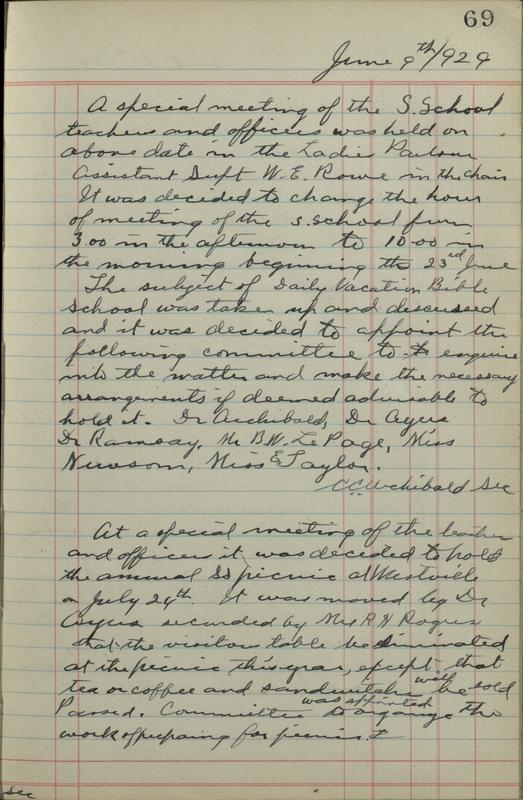 69
June 9th/1929
A special meeting of the S. School
teachers and officers was held on
above date in the Ladies Parlour
Assistant Supt W. E. Rowe in the chair
It was decided to change the hour
of meeting of the S. School from
3.00 in the afternoon to 10.00 in
the morning beginning the 23rd June
The subject of Daily Vacation Bible
School was taken up and discussed
and it was decided to appoint the
following committee to enquire
into the matter and make the necessary
arrangements if deemed advisable to
hold it. Dr Archibald, Dr Ayers
Dr Ramsay, Mr B.W. LePage, Miss
Newsom, Miss E Taylor.
C.C. Archibald Sec
At a special meeting of the teachers
and officers it was decided to hold
the annual SS picnic at Westville
on July 24th. It was moved by Dr
Ayers seconded by Mrs R H Rogers
that the visitors table be eliminated
at the picnic this year, except that
tea or coffee and sandwiches will be sold
Passed. Committee was appointed to arrange the
work of preparing for picnic.
Sec